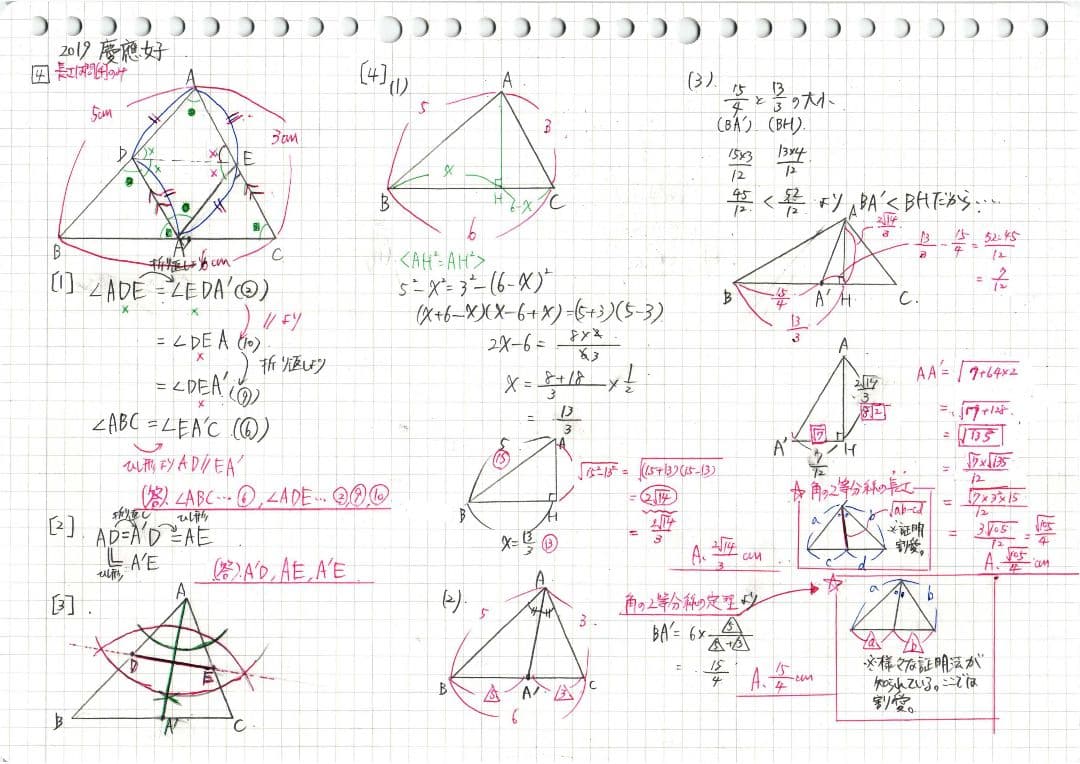 2019 慶應女子
4 長さは問[4]のみ
A
5cm
3cm
D
E
B
A'
C
折り返し 6cm
[1] ∠ADE = ∠EDA'(②)
// より
= ∠DEA (⑩)
折り返しより
= ∠DEA' (⑨)
∠ABC = ∠EA'C (⑥)
ひし形よりAD//EA'
(答) ∠ABC… ⑥, ∠ADE… ②,⑨,⑩
[2] 折り返し ひし形
AD = A'D = AE
ひし形 A'E
(答) A'D, AE, A'E
[3]
A
D
E
B
A'
C
[4] (1)
A
5
3
x
B
H
6-x
C
6
<AH²=AH²>
5²-x²=3²-(6-x)²
(x+6-x)(x-6+x)=(5+3)(5-3)
2x-6 = 8×2/6 3
x = 8+18/3 × 1/2
= 13/3
5
A
⑮
B
H
x=13/3 ⑬
√15²-13² = √(15+13)(15-13)
= 2√14
= 2√14/3
A. 2√14/3 cm
(2)
A
5
3
B
A'
C
5
3
6
角の2等分線の定理より
BA' = 6× 5/5+3
= 15/4
A. 15/4 cm
(3)
15/4 と 13/3 の大小
(BA') (BH)
15×3/12 13×4/12
45/12 < 52/12 より BA'<BHだから…
A
2√14/3
13/3 - 15/4 = 52-45/12
= 7/12
B
15/4
A'
H
C
13/3
A
2√14/3
8√2
A'
√7
H
7/12
AA' = √7+64×2
= √7+128
= √135
= √7×√135/12
= √7×3³×15/12
= 3√105/12 = √105/4
A. √105/4 cm
☆ 角の2等分線の長さ
a
b
c
d
√ab-cd
※証明割愛。
☆
a
b
a
b
※様々な証明法が
知られている。ここでは
割愛。